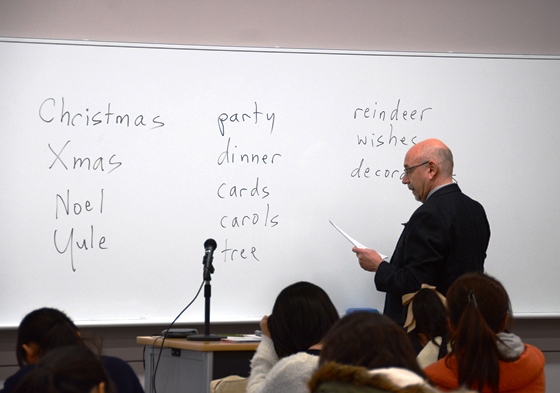 Christmas
Xmas
Noel
Yule
party
dinner
cards
carols
tree
reindeer
wishes